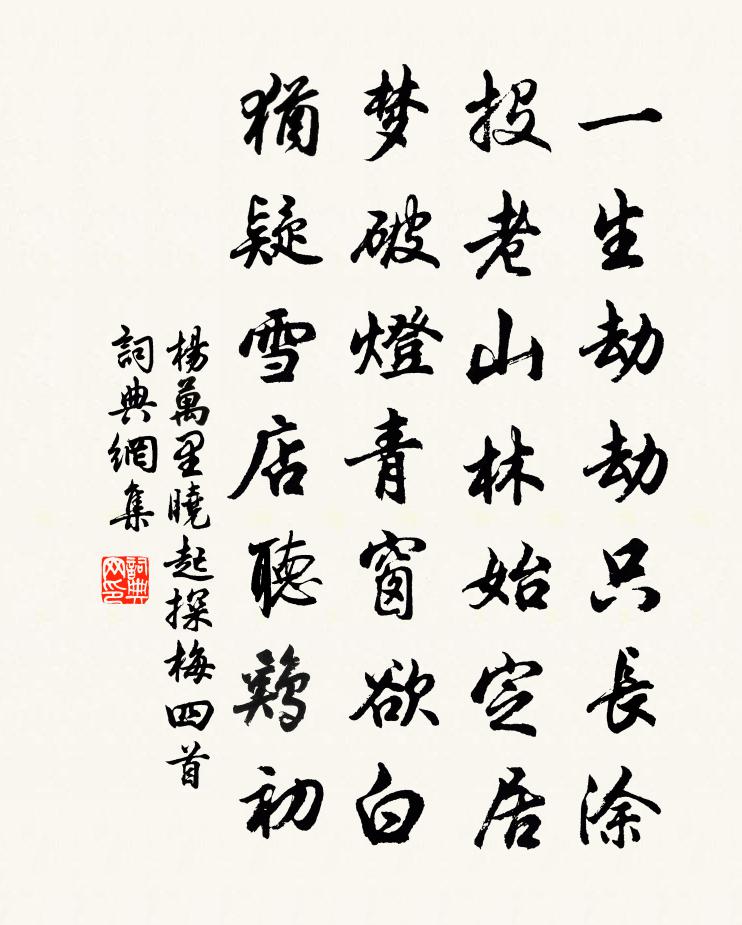 一生劫劫只長涂
投老山林始定居
梦破燈青窗欲白
猶疑雪店聽鷄初
楊萬里曉起探梅四首
詞典網集
詞典网印